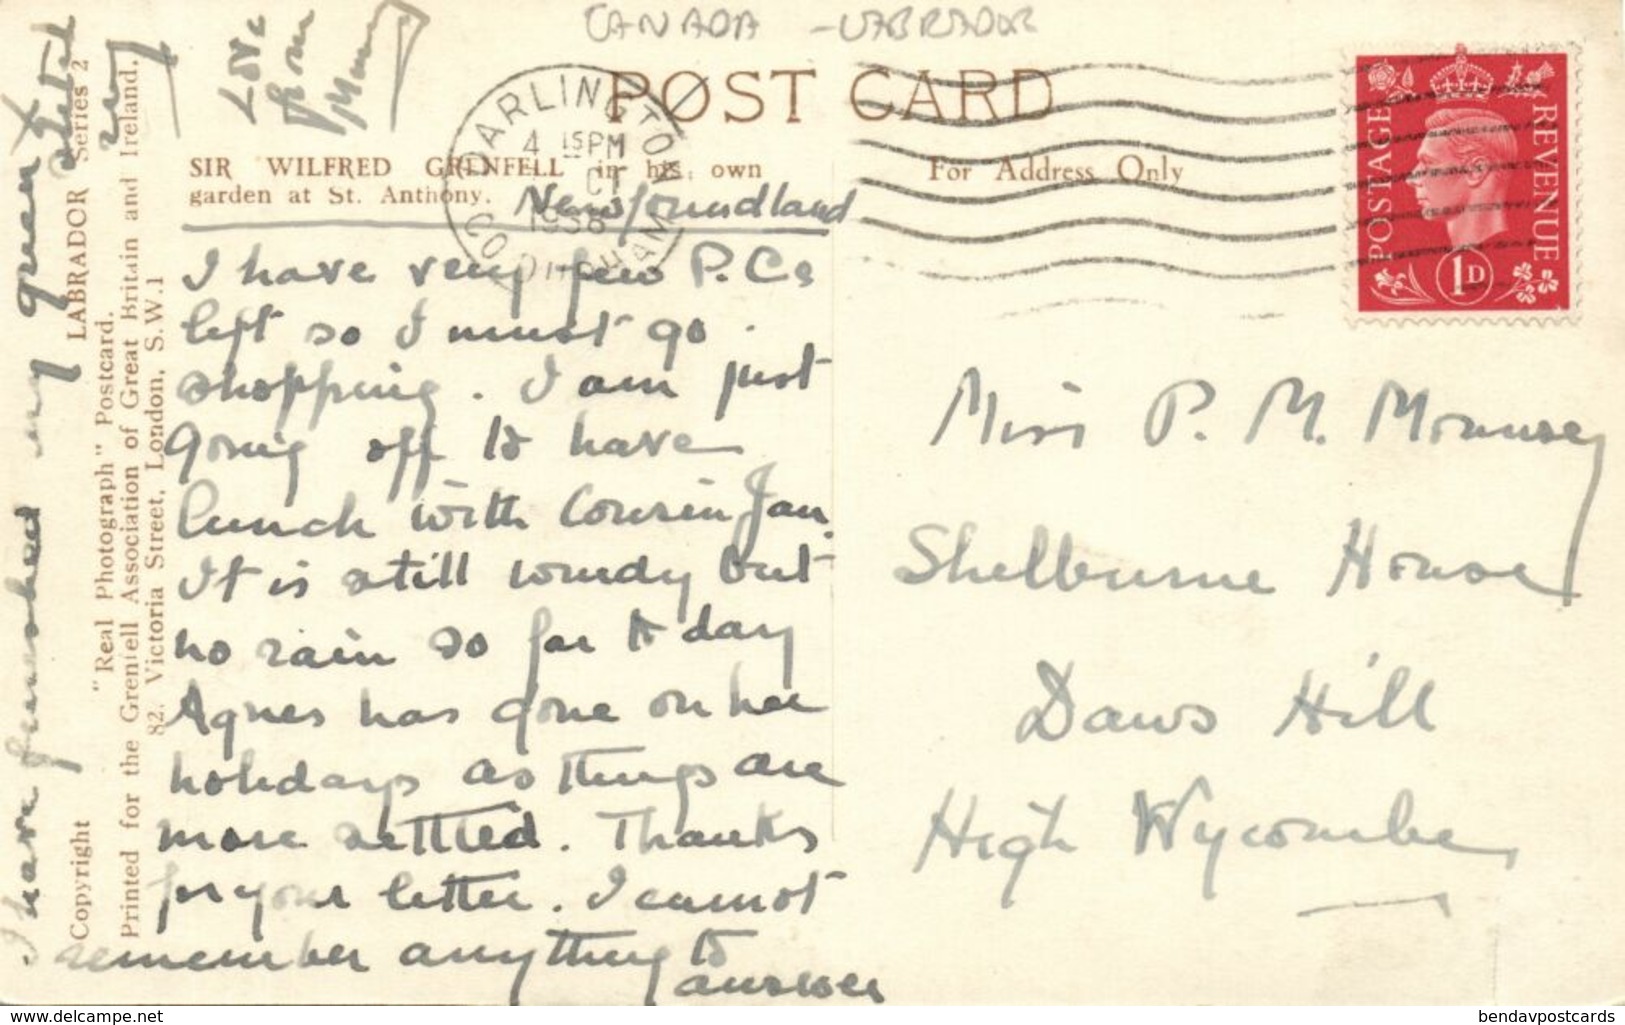 CANADA - LABRADOR
POST CARD
SIR WILFRED GRENFELL in his own
garden at St. Anthony.
Newfoundland
For Address Only
DARLINGTON
CO. DURHAM
4 15 PM
OCT
1938
POSTAGE
REVENUE
1D
I have very few P.Cs
left so I must go
shopping. I am just
going off to have
lunch with Cousin Jan.
It is still windy but
no rain so far to day
Agnes has gone on her
holidays as things are
more settled. Thanks
for your letter. I cannot
remember anything to
answer
I have finished my green
Love
from
Mummy
Miss P. M. Mounsey
Shelburne House
Daws Hill
High Wycombe
LABRADOR Series 2
"Real Photograph" Postcard.
Copyright
Printed for the Grenfell Association of Great Britain and Ireland,
82, Victoria Street, London, S.W.1
bendavpostcards.com
bendavpostcards